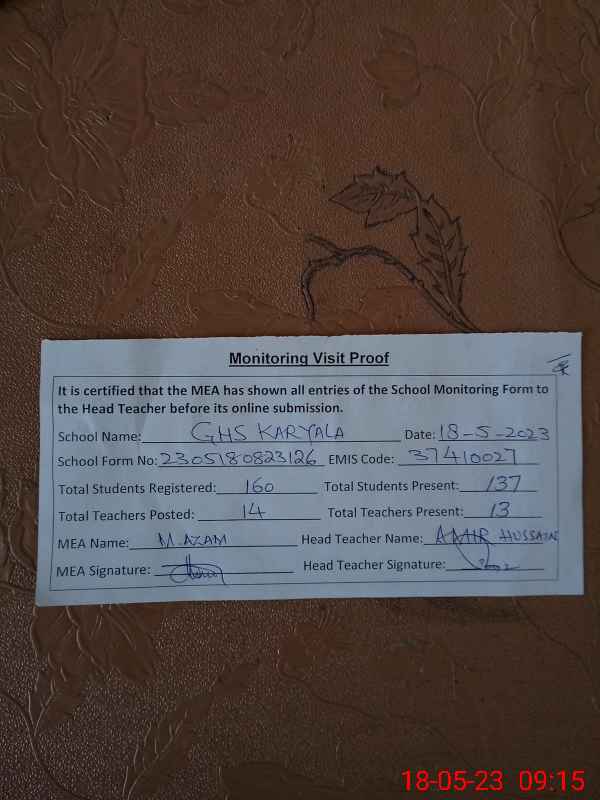 Monitoring Visit Proof
It is certified that the MEA has shown all entries of the School Monitoring Form to
the Head Teacher before its online submission.
School Name: GHS KARYALA Date: 18-5-2023
School Form No: 2305180823126 EMIS Code: 37410027
Total Students Registered: 160 Total Students Present: 137
Total Teachers Posted: 14 Total Teachers Present: 13
MEA Name: M.AZAM Head Teacher Name: AMIR HUSSAIN
MEA Signature: Head Teacher Signature:
18-05-23 09:15